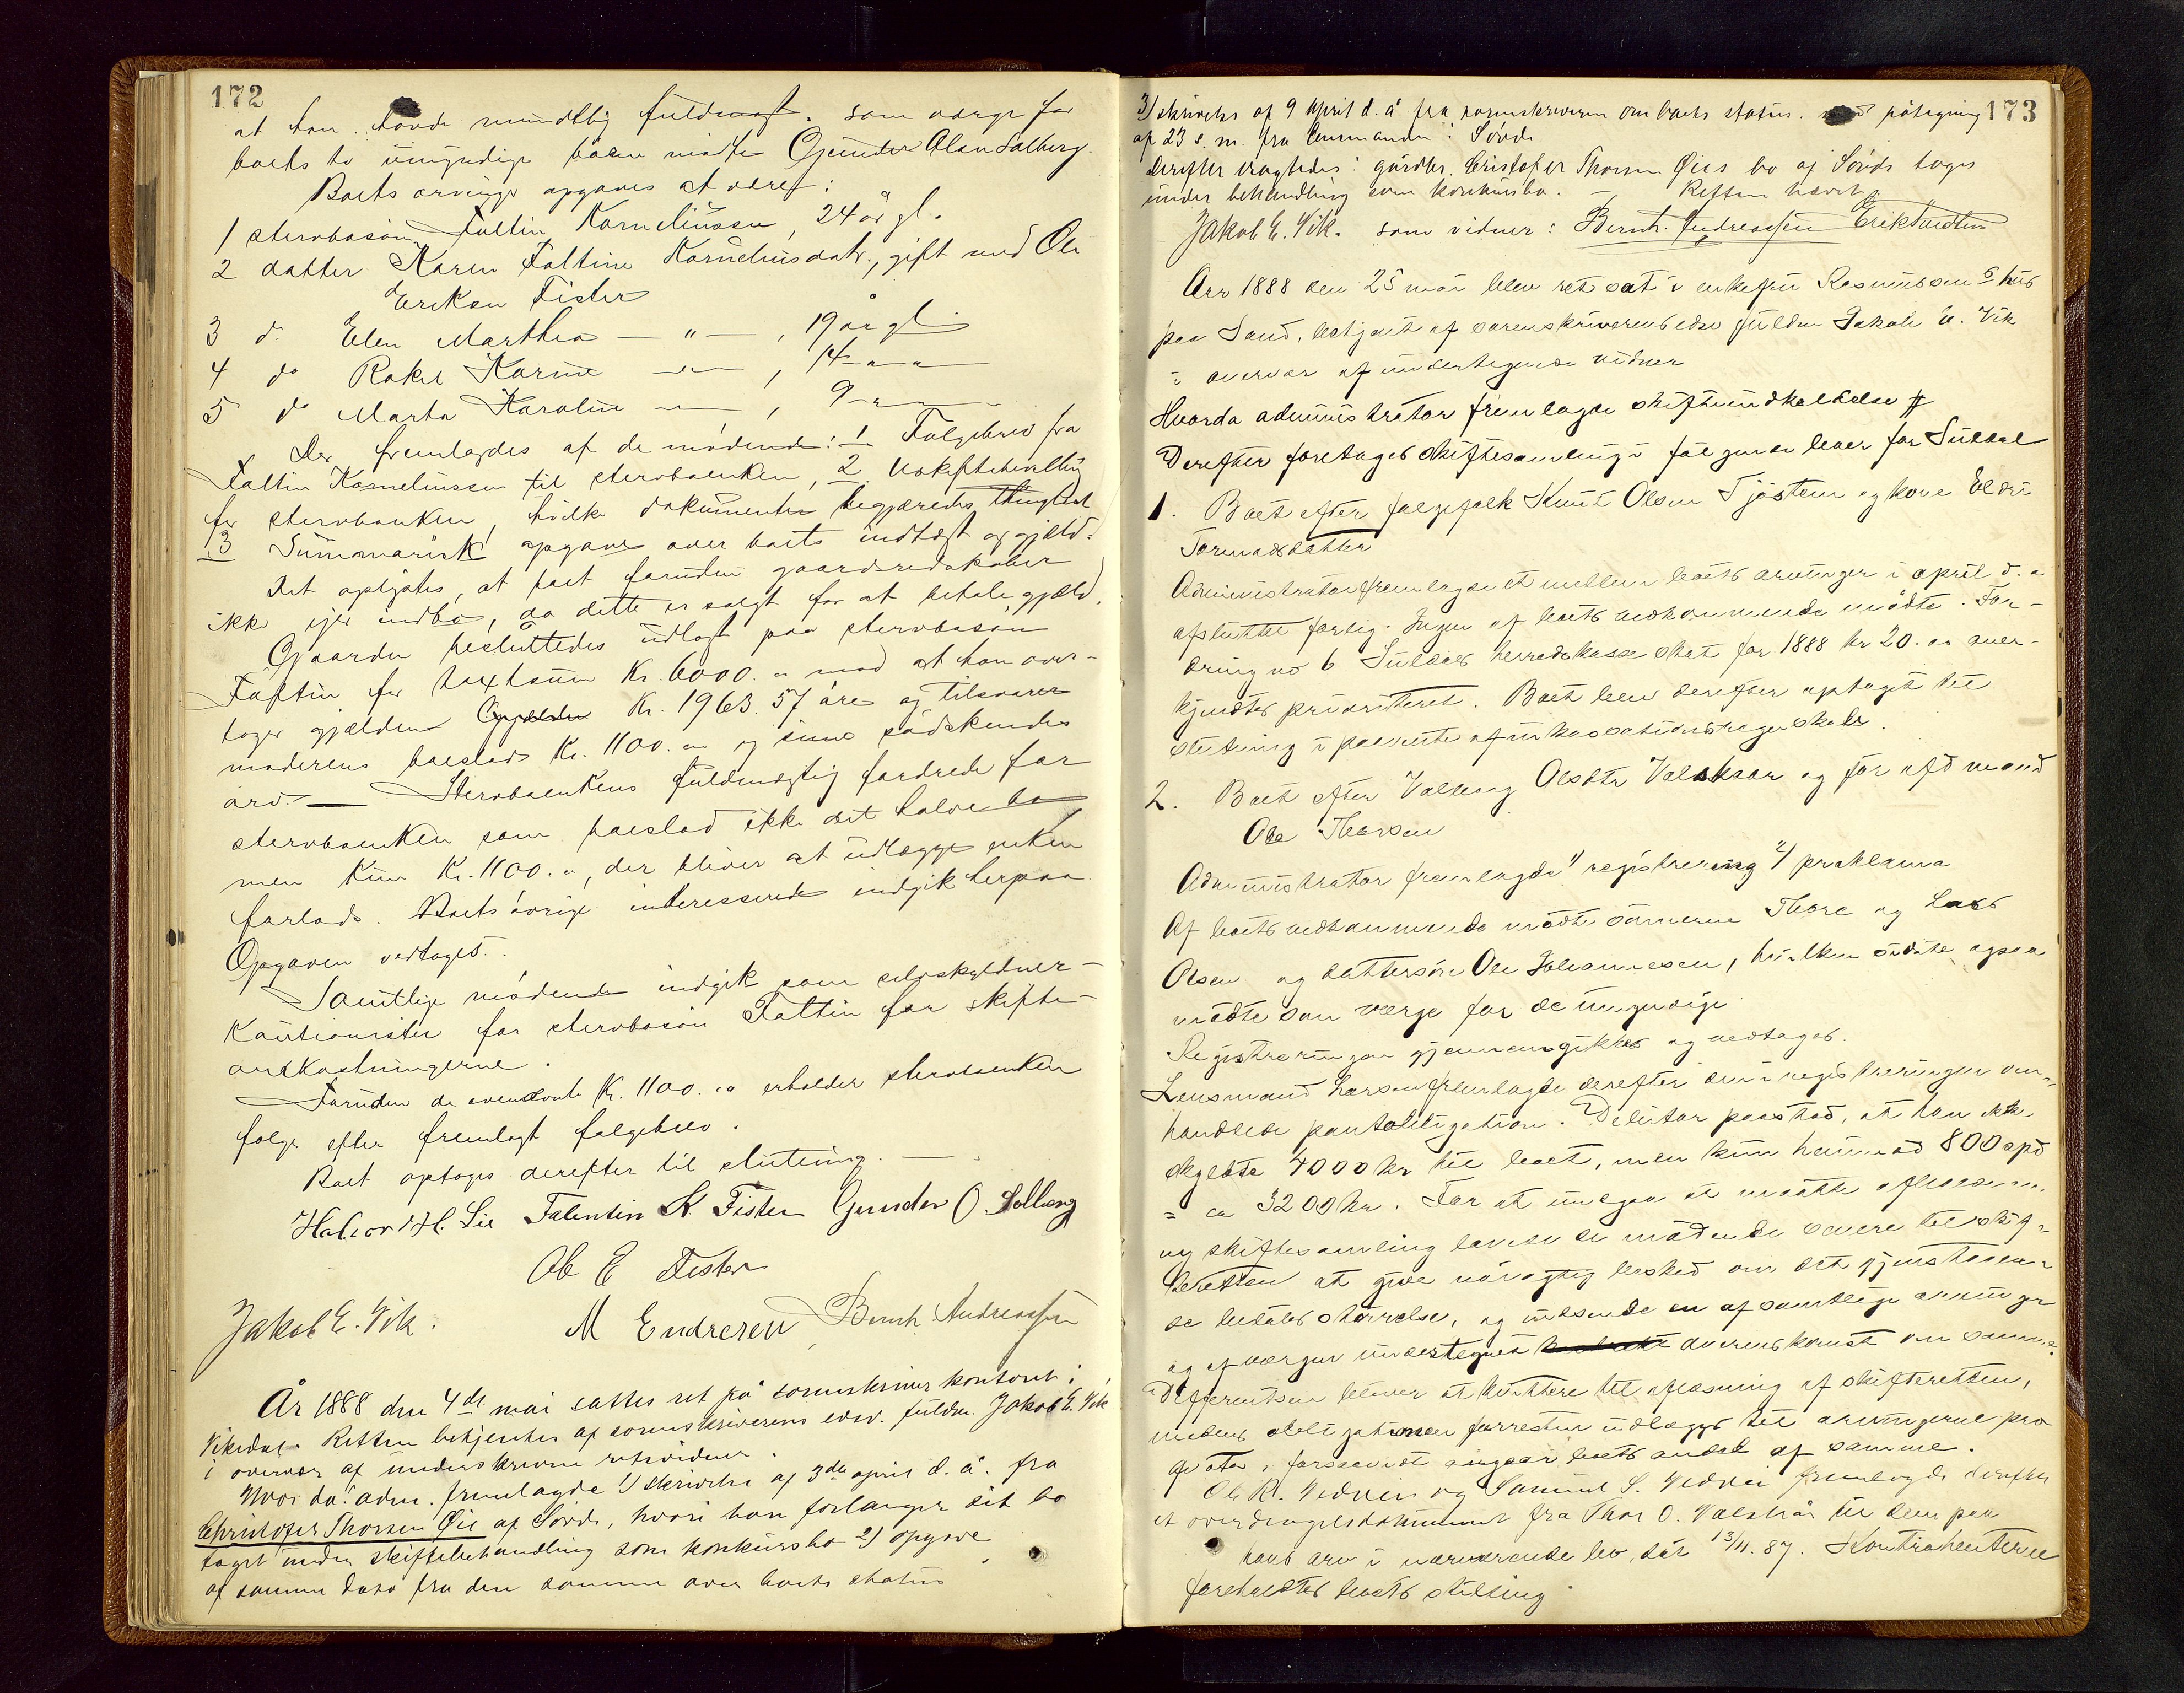 172
at han havde mundtlig fuldmagt. som værge for
boets to umyndige børn mødte Gunder Olsen Solberg.
Boets arvinger opgaves at være:
1 stervbosøn Faltin Korneliussen, 24 år gl.
2 datter Karen Faltine Korneliusdatr., gift med Ole
Eriksen Fister
3 do Elen Marthea — " — , 19 år gl
4 do Rakel Karine — " — , 14 — " —
5 do Marta Karoline — " — , 9 — " —
Der fremlagdes af de mødende: 1 Følgebrev fra
Faltin Korneliussen til stervboenken, 2 uskiftebevilling
for stervboenken, hvilke dokumenter begjæredes thinglæst
3 Summarisk opgave over boets indtægt og gjæld.
Det oplystes, at boet foruden gaardsredskaber
ikke ejer indbo, da dette er solgt for at betale gjæld.
Gaarden besluttedes udlagt paa stervbosøn
Faltin for taxtsum Kr. 6000. " mod at han over-
tager gjælden Kr. 1963. 57 øre og tilsvarer
moderens boeslod Kr. 1100. " og sine sødskendes
arv. — Stervboenkens fuldmægtig fordrede for
stervboenken som boeslod ikke det halve bo
men kun Kr. 1100. ", der bliver at udlægge enken
forlods. Boets øvrige interesserede indgik herpaa.
Opgaven vedtoges.
Samtlige mødende indgik som selvskyldner-
kautionister for stervbosøn Faltin for skifte-
omkostningerne.
Foruden de ovennævnte Kr. 1100. " erholder stervboenken
følge efter fremlagt følgebrev.
Boet optoges derefter til slutning. —
Halvor H. Lie Falentin K. Fister Gunder O. Solberg
Ole E Fister
Jakob E. Vik. M Endresen Bernh. Andreassen
År 1888 den 4de mai sattes ret på sorenskriver kontoret i
Vikedal. Retten betjentes af sorenskriverens edsv. fuldm. Jakob E. Vik
i overvær af underskrevne retsvidner.
Hvor da: adm. fremlagde 1) skrivelse af 3de april d. å. fra
Christofer Thorsen Øie af Sövde, hvori han forlanger sit bo
taget under skiftebehandling som konkursbo 2) opgave
af samme dato fra den samme over boets status
173
3) skrivelse af 9 april d. å fra sorenskriveren om boets status. med påtegning
af 23 s. m. fra lensmanden i Sövde
Derefter eragtedes: gårdbr. Cristofer Thorsen Øies bo af Sövde tages
under behandling som konkursbo. — Retten hævet.
Jakob E. Vik. som vidner: Bernh. Andreassen Erik Knudsen
Aar 1888 den 25 mai blev ret sat i enkefru Rasmussens hus
paa Sand, betjent af sorenskriverens edsv fuldm Jakob E. Vik
i overvær af undertegnede vidner
Hvorda administrator fremlagde skifteindkaldelse #
Derefter foretages skiftesamling i følgende boer for Suldal
1. Boet efter følgefolk Knut Olsen Tjøstem og kone Eldri
Tormodsdatter
Administrator fremlagde et mellem boets arvinger i april d. a
afsluttet forlig. Ingen af boets vedkommende mødte. For-
dring no 6 Suldals herredskasse skat for 1888 kr 20. " aner-
kjendtes prioriteret. Boet blev derefter optaget til
slutning i paavente af inkassationsregnskabet.
2. Boet efter Valborg Olsdtr Valskaar og før afd mand
Ole Thorsen
Administrator fremlagde 1) registrering 2) proklama
Af boets vedkommende mødte sønnerne Thore og Lars
Olsen og dattersøn Ole Johannesen, hvilken sidste ogsaa
mødte som værge for de umyndige
Registreringen gjennemgikkes og vedtoges.
Lensmand Larsen fremlagde derefter den i registreringen om-
handlede pantobligation. Debitor paastod, at han ikke
skyldte 4000 kr til boet, men kun henimod 800 spd
= ca 3200 kr. For at undgaa at maatte afholde en
ny skiftesamling lovede de mødende senere til skif-
teretten at give nöiagtig besked om det gjenstaaen-
de beløbs størrelse, og indsende en af samtlige arvinger
og af værgen undertegnet overenskomst om samme.
Differentsen bliver at kvittere til aflæsning af skifteretten,
medens obligationen forresten udlægges til arvingerne pro
qvota, forsaavidt angaar boets andel af samme.
Ole R. Vedvei og Samuel S. Vedvei fremlagde derefter
et overdragelsesdokument fra Thor O. Valskår til dem paa
hans arv i nærværende bo, dat 13/11. 87. Kontrahenterne
foreholdtes boets stilling